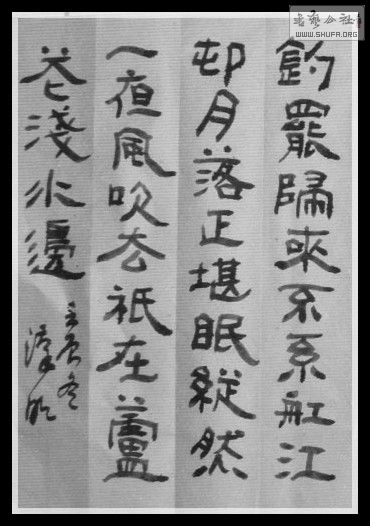 釣罷歸來不系舡江
邨月落正堪眠縱然
一夜風吹去祇在蘆
花淺水邊
書藝公社
WWW.SHUFA.ORG